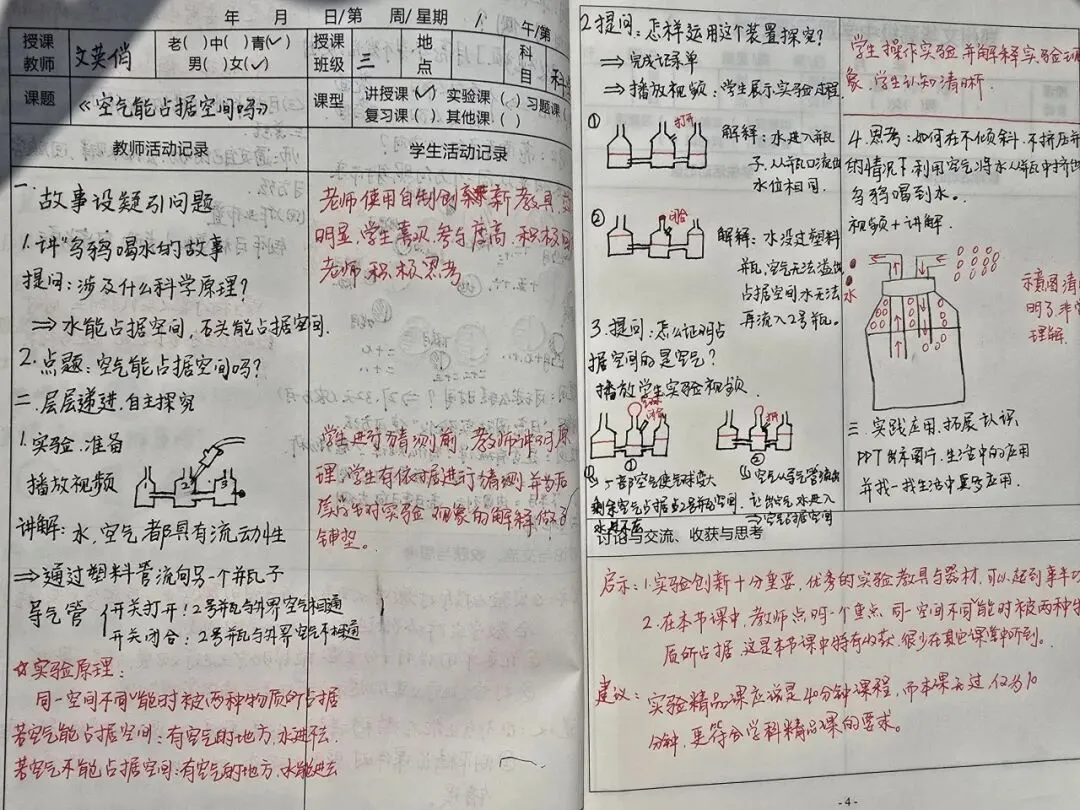 年 月 日/第 周/星期 / 午/第
授课教师 文英俏 老( )中( )青(✓) 男( )女(✓) 授课班级 三 地点 科目 科
课题 《空气能占据空间吗》 课型 讲授课(✓) 实验课( ) 习题课( 复习课( ) 其他课( )
教师活动记录 学生活动记录
一. 故事设疑引问题
1. 讲"乌鸦喝水的故事
提问:涉及什么科学原理?
⇒ 水能占据空间,石头能占据空间.
2. 点题:空气能占据空间吗?
二. 层层递进.自主探究
1. 实验准备
播放视频
讲解:水,空气都具有流动性
⇒通过塑料管流向另一个瓶子
导气管
开关打开:2号瓶与外界空气相通
开关闭合:2号瓶与外界空气不相通
☆实验原理:
同一空间不同"能时被两种物质所占据
若空气能占据空间:有空气的地方,水进不去
若空气不能占据空间:有空气的地方,水能进去
老师使用自制创新教具,
明显,学生喜欢,参与度高,积极
老师积极思考
学生进行猜测前,教师讲对原
理,学生有依据进行猜测,并为后
面对实验现象的解释做了
铺垫。
2. 提问:怎样运用这个装置探究?
⇒ 完成记录单
⇒ 播放视频,学生展示实验过程.
① 打开
解释:水进入瓶
子,从瓶口流出
水位相同.
② 闭合
解释:水没过塑料
瓶,空气无法溢出
占据空间水无法
再流入2号瓶.
3. 提问:怎么证明占
据空间的是空气?
播放学生实验视频.
① 一部空气使气球变大
剩余空气占据2号瓶空间
② 空气从导气管溢出
让出空气,水进入
⇒空气占据空间
学生操作实验并解释实验现
象,学生认知清晰.
4. 思考:如何在不倾斜.不挤压
的情况下,利用空气将水从瓶中挤出
乌鸦喝到水。
视频+讲解.
水
示意图清
明了
理解.
三. 实践应用.拓展认识
PPT出示图片.生活中的应用
并找一找生活中更多应用.
讨论与交流、收获与思考
启示:1. 实验创新十分重要,优秀的实验教具与器材,可以起到事半
2. 在本节课中,教师点明一个重点,同一空间不同"能时被两种物
质所占据,这是本节课中特有的收获,很少在其它课堂中听到。
建议:实验精品课应该是40分钟课程,而本课无过仅为10
分钟,更符合学科精品课的要求。
- 4 -